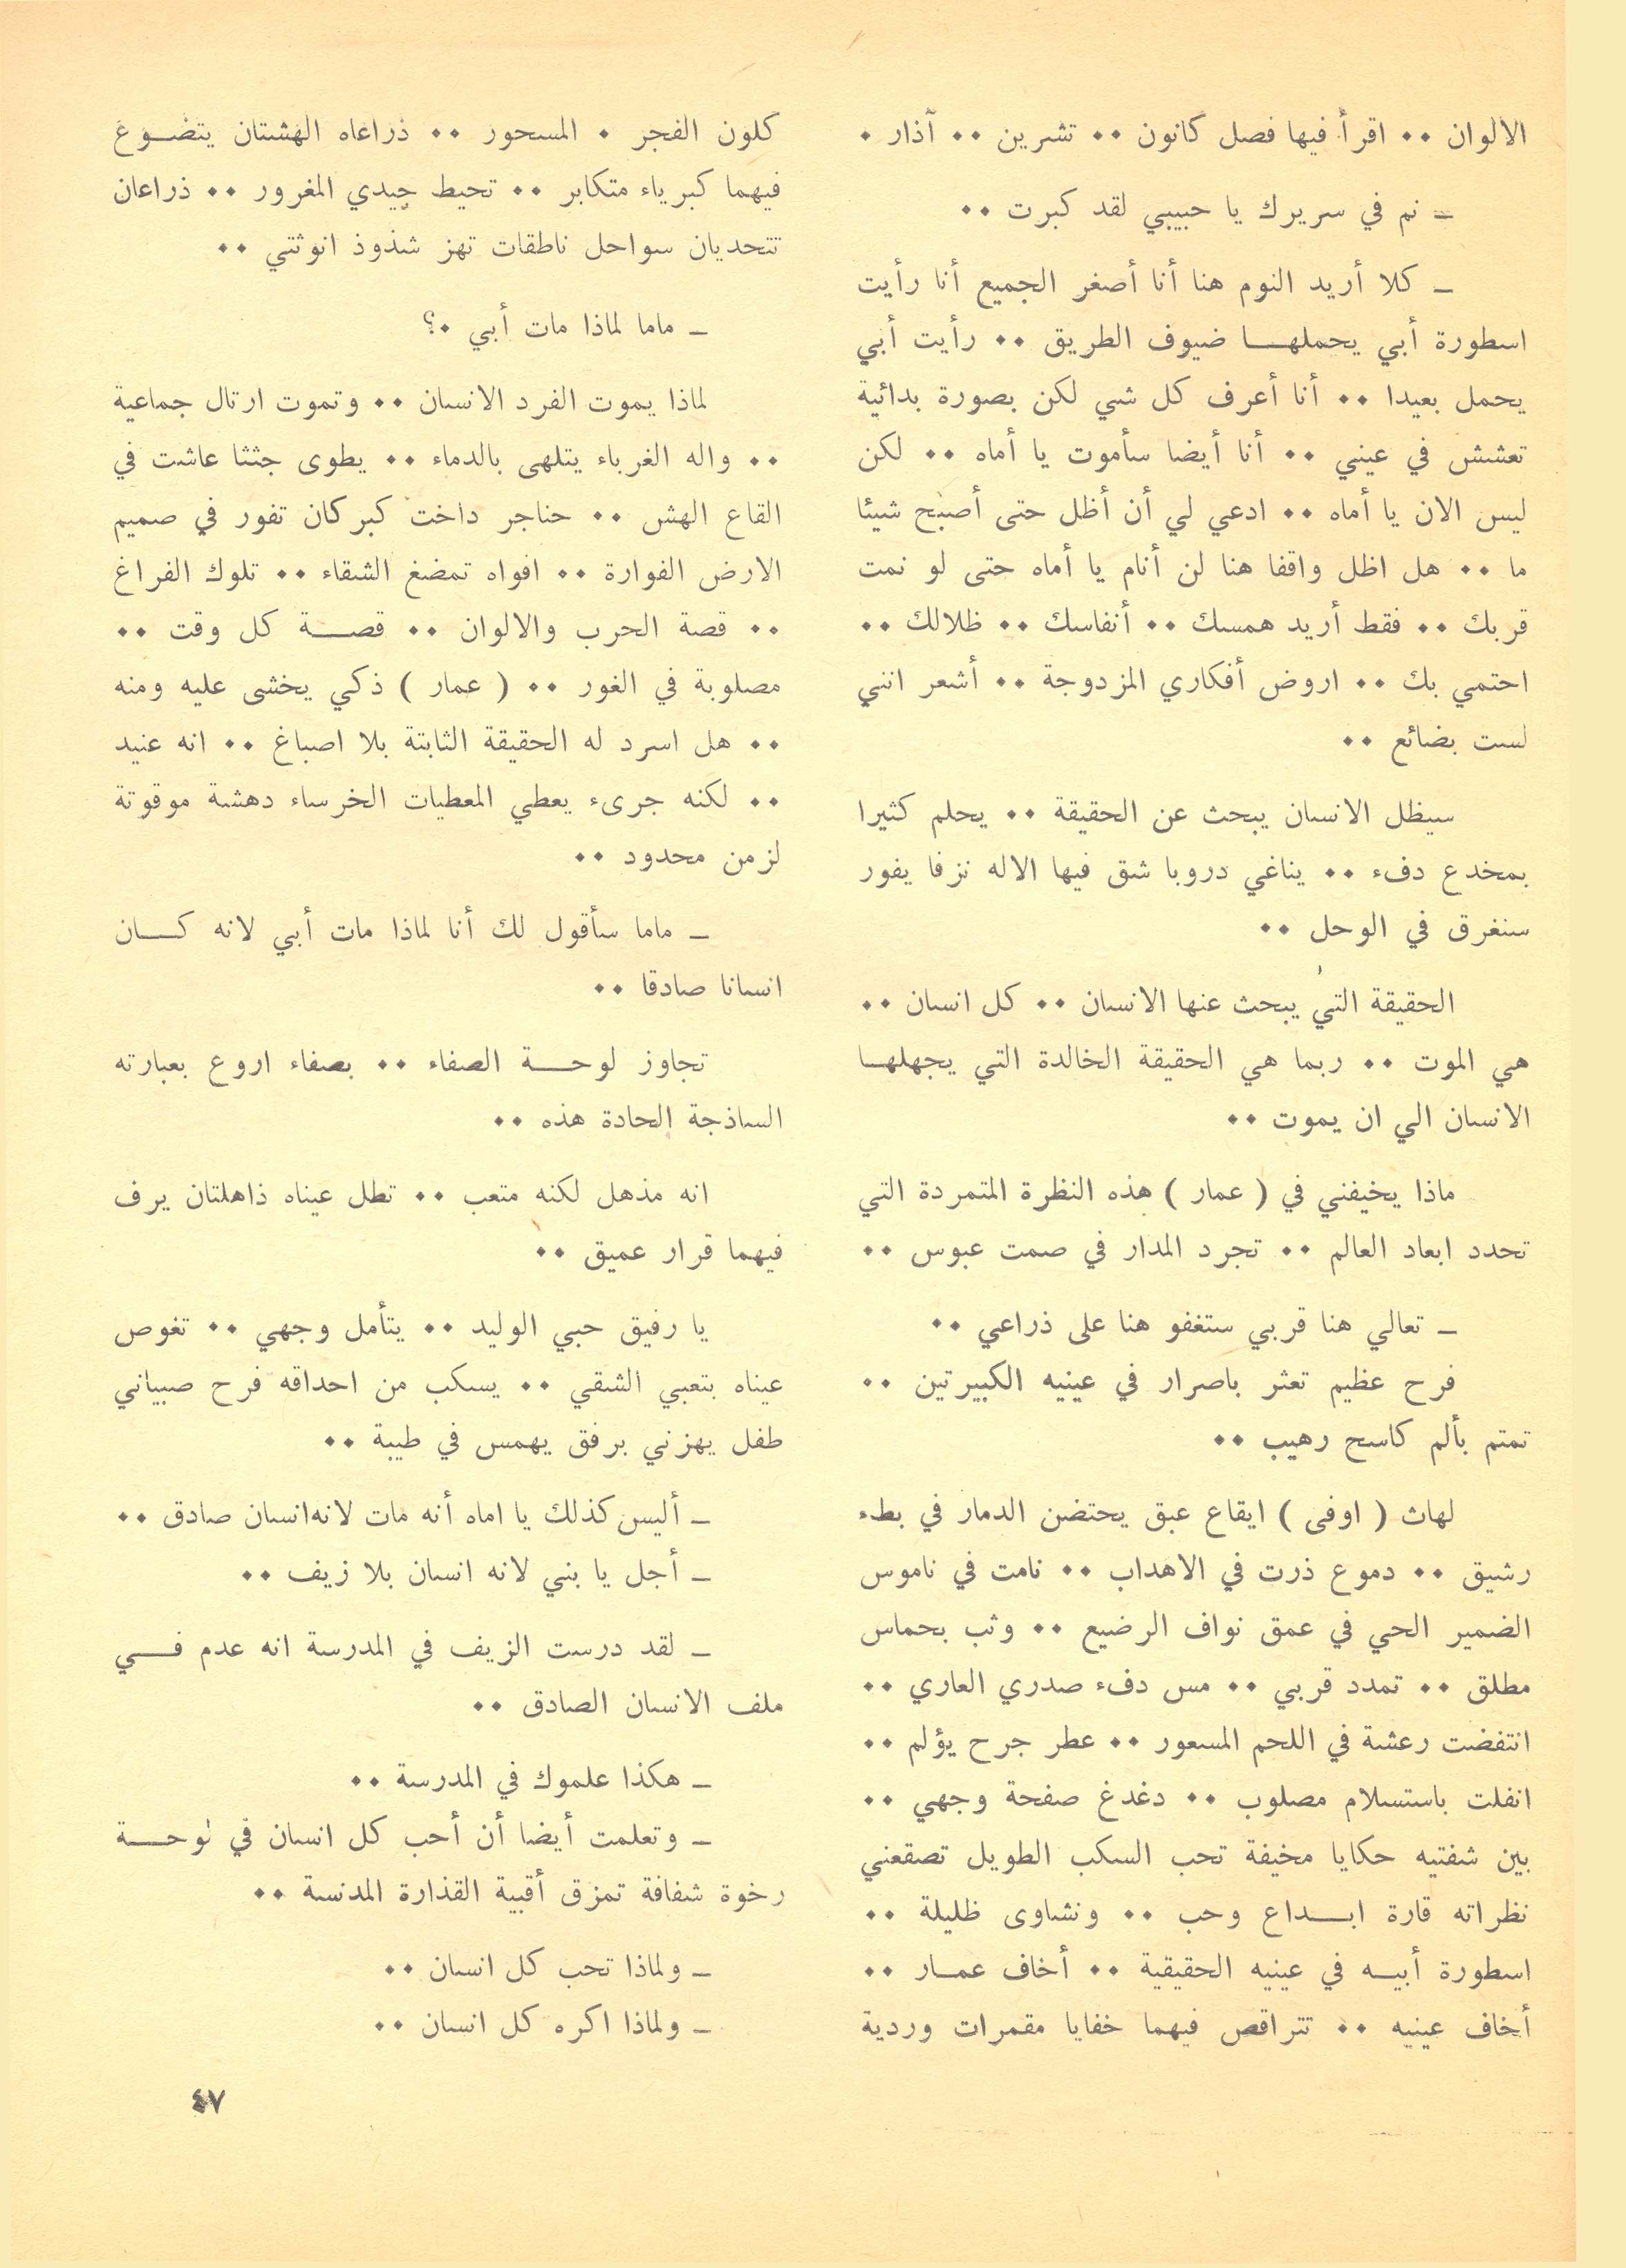 الالوان ٠٠ اقرأ فيها فصل كانون ٠٠ تشرين ٠٠ آذار ٠
ـ نم في سريرك يا حبيبي لقد كبرت ٠٠
ـ كلا أريد النوم هنا أنا أصغر الجميع أنا رأيت
اسطورة أبي يحملهـــا ضيوف الطريق ٠٠ رأيت أبي
يحمل بعيدا ٠٠ أنا أعرف كل شي لكن بصورة بدائية
تعشش في عيني ٠٠ أنا أيضا سأموت يا أماه ٠٠ لكن
ليس الان يا أماه ٠٠ ادعي لي أن أظل حتى أصبح شيئا
ما ٠٠ هل اظل واقفا هنا لن أنام يا أماه حتى لو نمت
قربك ٠٠ فقط أريد همسك ٠٠ أنفاسك ٠٠ ظلالك ٠٠
احتمي بك ٠٠ اروض أفكاري المزدوجة ٠٠ أشعر انني
لست بضائع ٠٠
سيظل الانسان يبحث عن الحقيقة ٠٠ يحلم كثيرا
بمخدع دفء ٠٠ يناغي دروبا شق فيها الاله نزفا يفور
سنغرق في الوحل ٠٠
الحقيقة التي يبحث عنها الانسان ٠٠ كل انسان ٠٠
هي الموت ٠٠ ربما هي الحقيقة الخالدة التي يجهلهـا
الانسان الي ان يموت ٠٠
ماذا يخيفني في ( عمار ) هذه النظرة المتمردة التي
تحدد ابعاد العالم ٠٠ تجرد المدار في صمت عبوس ٠٠
ـ تعالي هنا قربي ستغفو هنا على ذراعي ٠٠
فرح عظيم تعثر باصرار في عينيه الكبيرتين ٠٠
تمتم بألم كاسح رهيب ٠٠
لهاث ( اوفى ) ايقاع عبق يحتضن الدمار في بطء
رشيق ٠٠ دموع ذرت في الاهداب ٠٠ نامت في ناموس
الضمير الحي في عمق نواف الرضيع ٠٠ وثب بحماس
مطلق ٠٠ تمدد قربي ٠٠ مس دفء صدري العاري ٠٠
انتفضت رعشة في اللحم المسعور ٠٠ عطر جرح يؤلم ٠٠
انفلت باستسلام مصلوب ٠٠ دغدغ صفحة وجهي ٠٠
بين شفتيه حكايا مخيفة تحب السكب الطويل تصقعني
نظراته قارة ابـــداع وحب ٠٠ ونشاوى ظليلة ٠٠
اسطورة أبيـه في عينيه الحقيقية ٠٠ أخاف عمـار ٠٠
أخاف عينيه ٠٠ تتراقص فيهما خفايا مقمرات وردية
كلون الفجر ٠ المسحور ٠٠ ذراعاه الهشتان يتضـوع
فيهما كبرياء متكابر ٠٠ تحيط جيدي المغرور ٠٠ ذراعان
تتحديان سواحل ناطقات تهز شذوذ انوثتي ٠٠
ـ ماما لماذا مات أبي ٠؟
لماذا يموت الفرد الانسان ٠٠ وتموت ارتال جماعية
٠٠ واله الغرباء يتلهى بالدماء ٠٠ يطوى جثثا عاشت في
القاع الهش ٠٠ حناجر داخت كبركان تفور في صميم
الارض الفوارة ٠٠ افواه تمضغ الشقاء ٠٠ تلوك الفراغ
٠٠ قصة الحرب والالوان ٠٠ قصـــة كل وقت ٠٠
مصلوبة في الغور ٠٠ ( عمار ) ذكي يخشى عليه ومنه
٠٠ هل اسرد له الحقيقة الثابتة بلا اصباغ ٠٠ انه عنيد
٠٠ لكنه جرىء يعطي المعطيات الخرساء دهشة موقوتة
لزمن محدود ٠٠
ـ ماما سأقول لك أنا لماذا مات أبي لانه كـــان
انسانا صادقا ٠٠
تجاوز لوحـــة الصفاء ٠٠ بصفاء اروع بعبارته
الساذجة الحادة هذه ٠٠
انه مذهل لكنه متعب ٠٠ تطل عيناه ذاهلتان يرف
فيهما قرار عميق ٠٠
يا رفيق حبي الوليد ٠٠ يتأمل وجهي ٠٠ تغوص
عيناه بتعبي الشقي ٠٠ يسكب من احداقه فرح صبياني
طفل يهزني برفق يهمس في طيبة ٠٠
ـ أليس كذلك يا اماه أنه مات لانه انسان صادق ٠٠
ـ أجل يا بني لانه انسان بلا زيف ٠٠
ـ لقد درست الزيف في المدرسة انه عدم فـــي
ملف الانسان الصادق ٠٠
ـ هكذا علموك في المدرسة ٠٠
ـ وتعلمت أيضا أن أحب كل انسان في لوحـــة
رخوة شفافة تمزق أقبية القذارة المدنسة ٠٠
ـ ولماذا تحب كل انسان ٠٠
ـ ولماذا اكره كل انسان ٠٠
٤٧